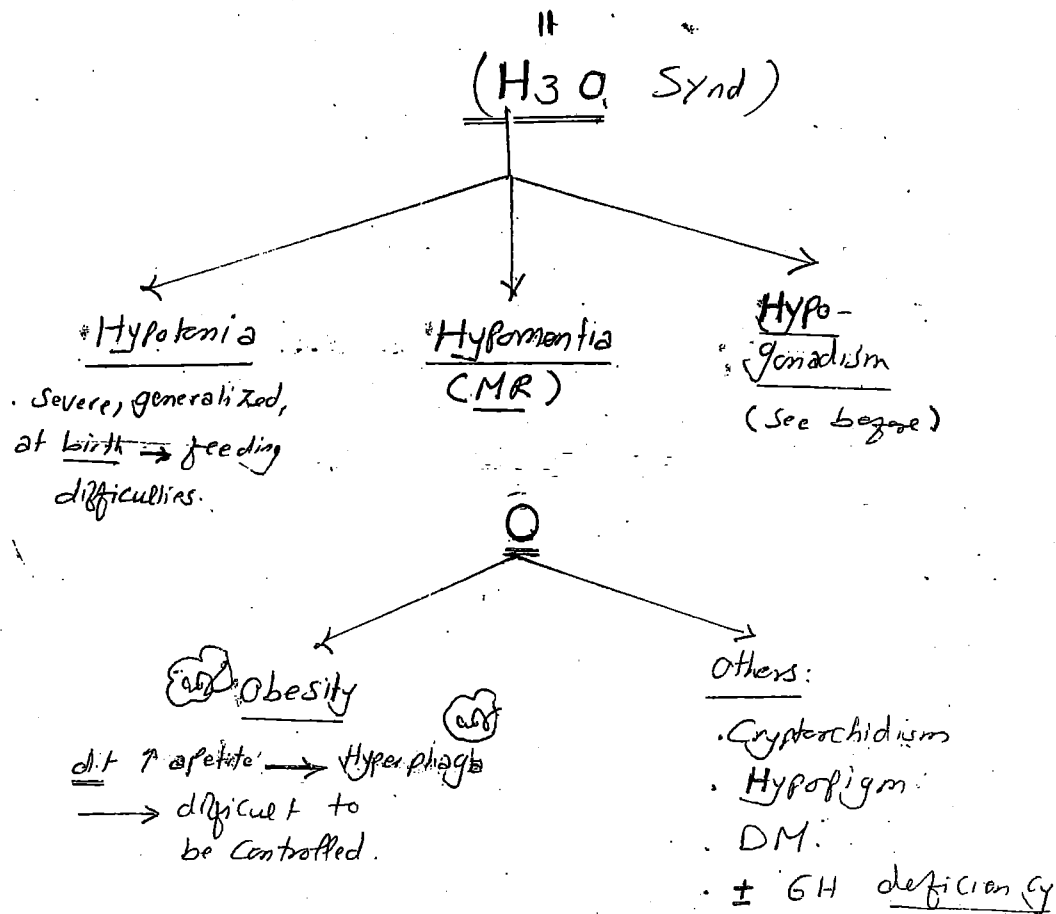 (H3O Synd)
Hypotonia
. Severe, generalized,
at birth → feeding
difficulties.
Hypomentia
(MR)
Hypo-
gonadism
(See before)
O
Obesity
d.t ↑ apetite → Hyperphagia
→ difficult to
be Controlled.
Others:
. Cryptorchidism
. Hypopigm.
. DM.
. ± GH deficiency